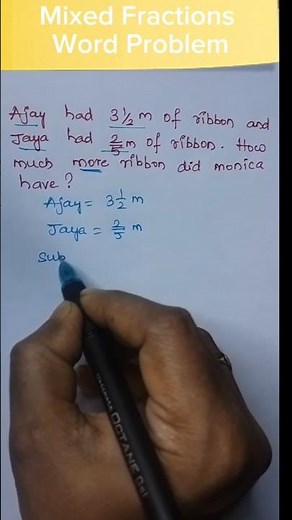 Mixed Fractions
Word Problem
Ajay had 3 1/2 m of ribbon and
Jaya had 2/5 m of ribbon. How
much more ribbon did monica
have?
Ajay = 3 1/2 m
Jaya = 2/5 m
Sub
OCTANE Gel